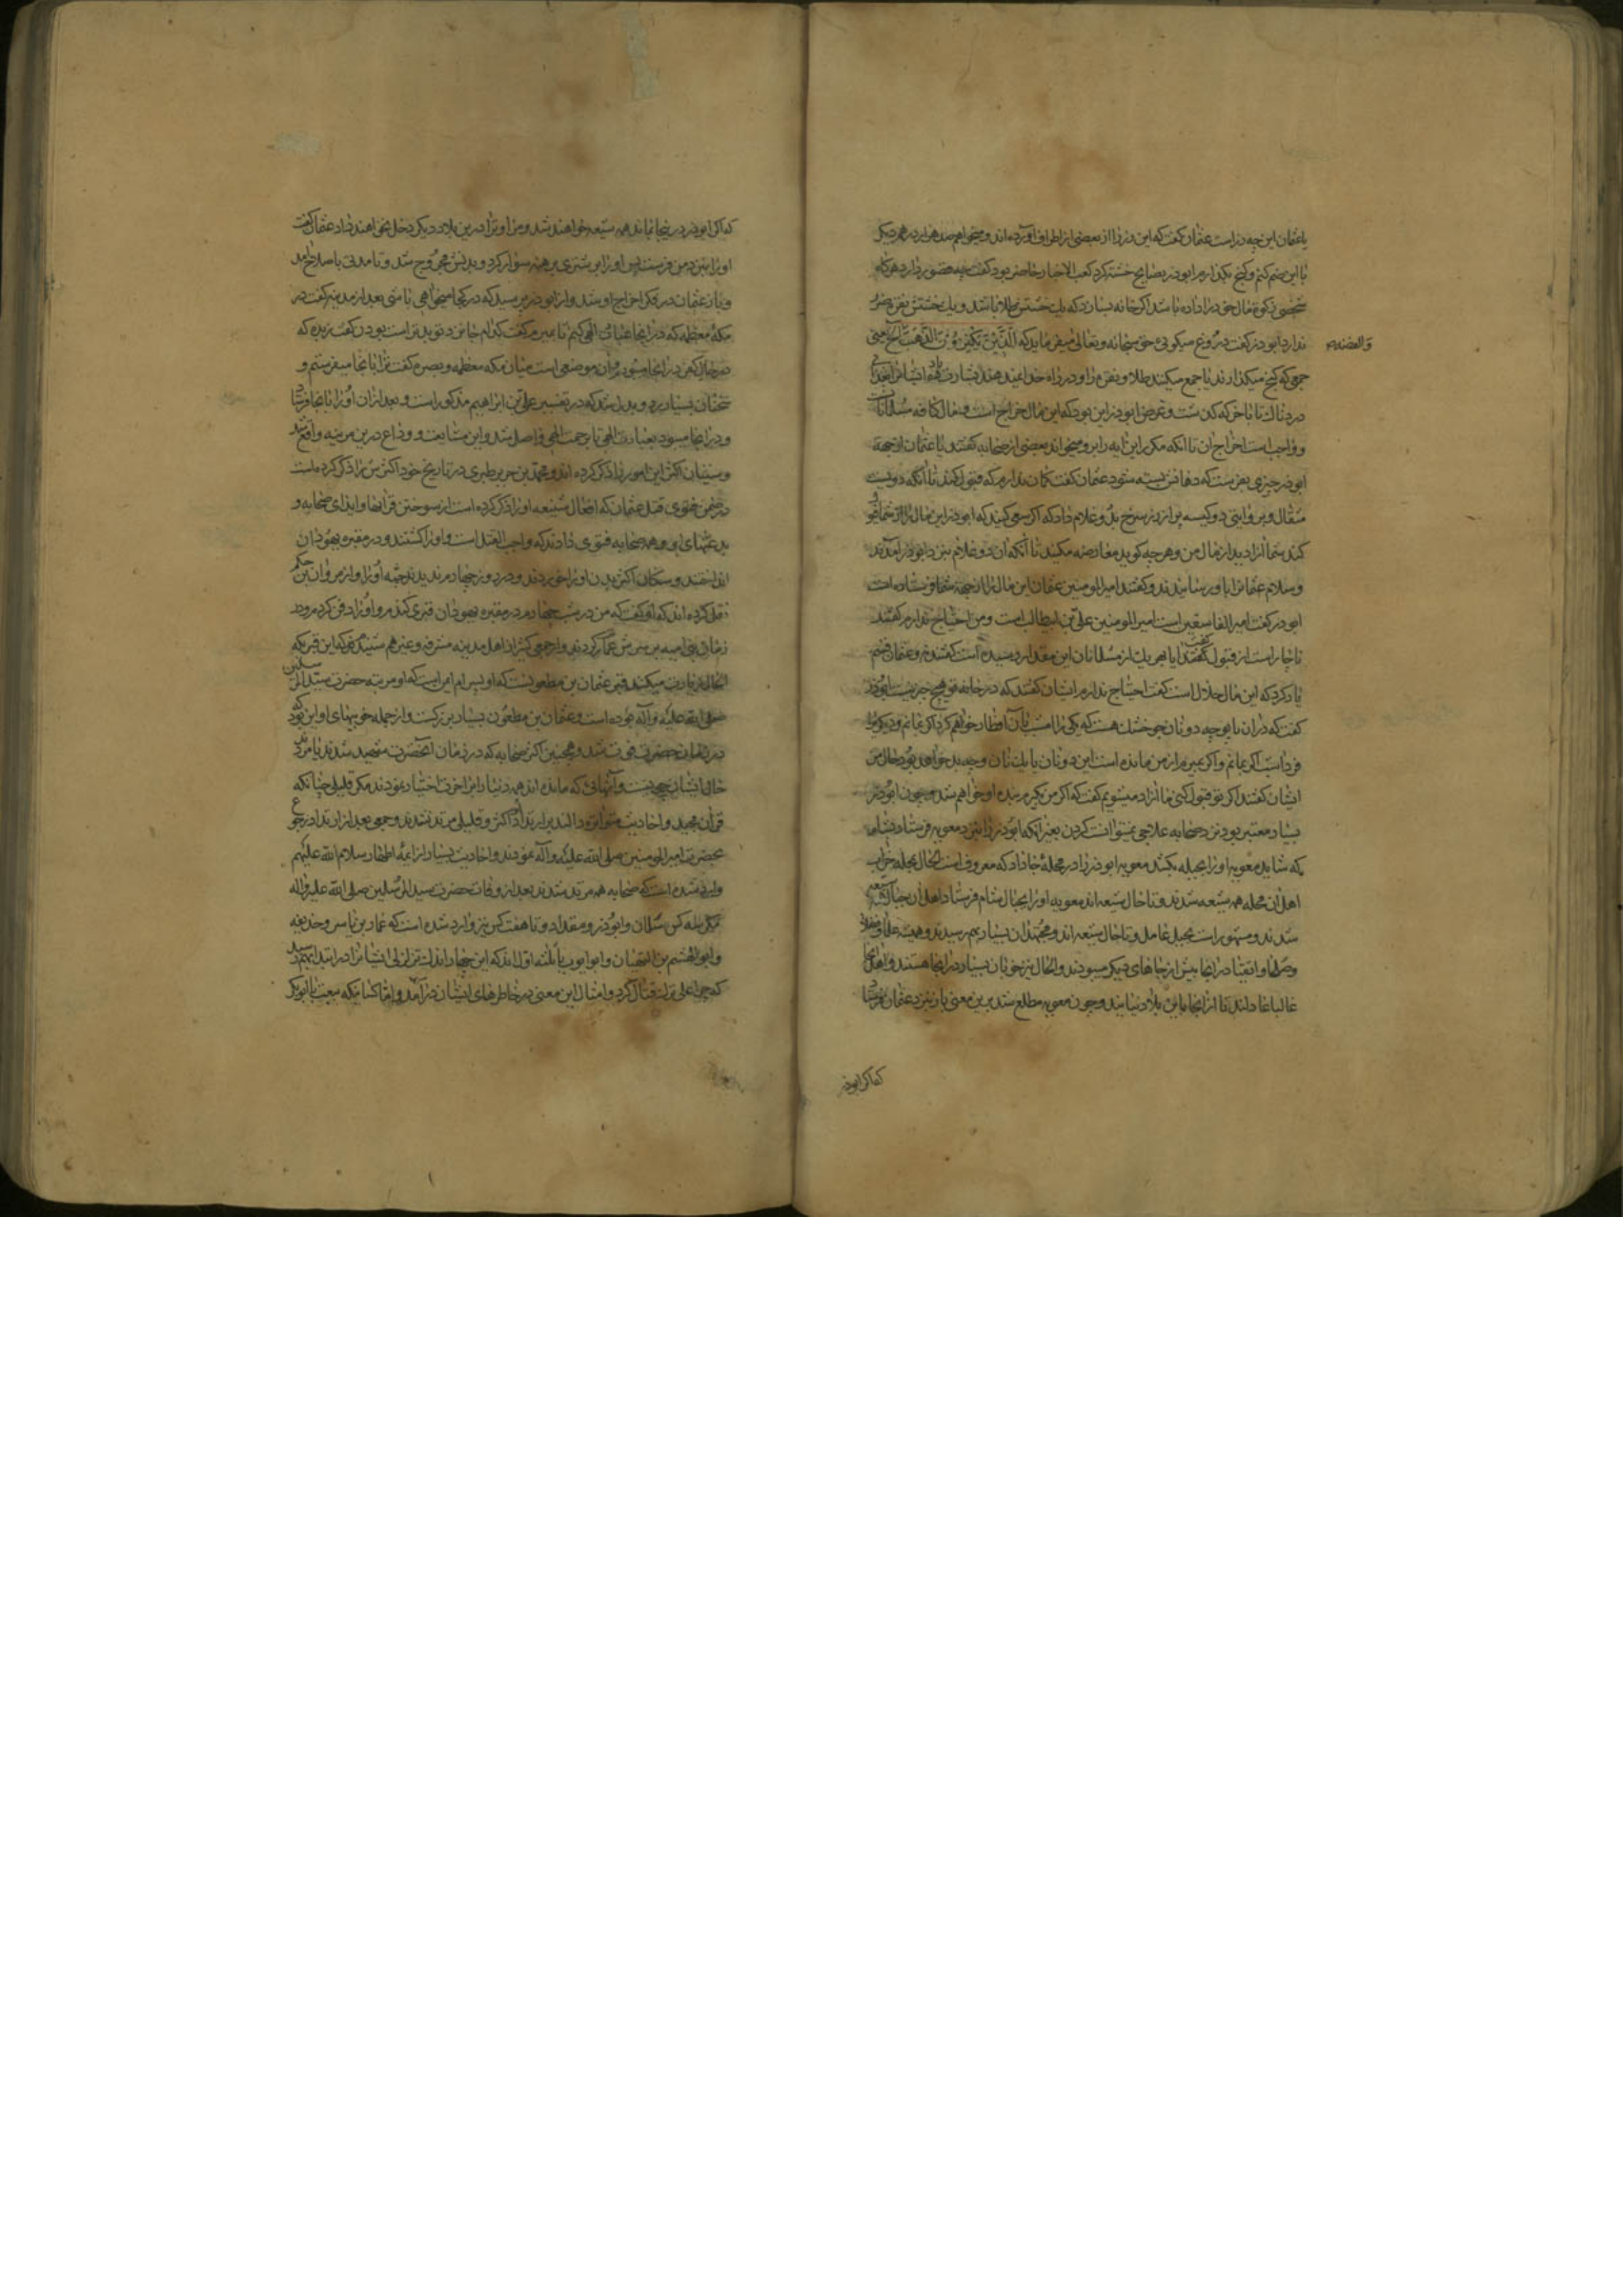 یا عثمان این چه زر است عثمان گفت که این زر را از بعضی از اطراف آورده‌اند و میخواهم صد هزار درهم دیگر
با این ضم کنم و کنج بگذارم ابوذر کعب الاحبار حاضر بود گفت چه ضرر دارد هرگاه
شخصی زکوة مال خود را داده باشد اگر خانه بسازد که یک خشتش طلا باشد و یک خشتش نقره ضرر
ندارد ابوذر گفت دروغ میگوئی حق سبحانه و تعالی میفرماید که الَّذِينَ يَكْنِزُونَ الذَّهَبَ الخ یعنی
والفضه
جمعی که کنج میگذارند یا جمع میکنند طلا و نقره را و در راه خدا نمیدهند بشارت ده ایشان را بعذابی
دردناک تا باخر که گذشت و غرض ابوذر این بود که این مال خراج است و مال کافه مسلمانان
و واجب است اخراج آن تا آنکه مکرر این آیه را بر او میخواند بعضی از صحابه گفتند یا عثمان از جهة
ابوذر چیزی بفرست که دهانش بسته شود عثمان گفت گمان ندارم که قبول کند تا آنکه دویست
مثقال و دو کیسه پر از زر سرخ بدو غلام داد که اگر سعی کنید که ابوذر این مال را از شما قبول
کند شما آزادید از مال من و هر چه گوید معارضه مکنید تا آنکه آن دو غلام نزد ابوذر آمدند
و سلام عثمان را باو رسانیدند و گفتند امیرالمومنین عثمان این مال را از جهة شما فرستاده است
ابوذر گفت امیر الفاسقین است امیرالمومنین علی بن ابیطالب است و من احتیاج ندارم گفتند
ناچار است از قبول گفت آیا بهر یک از مسلمانان این مقدار رسیده است گفتند نه و عثمان قسم
یاد کرد که این مال حلال است گفت احتیاج ندارم ایشان گفتند که در خانه تو هیچ چیز نیست ابوذر
گفت که در آن دو نان جو خشک هست که یکی را امشب بآن افطار خواهم کرد اگر بمانم و دیگری را
فردا شب اگر بمانم و اگر بمیرم از من مانده است این دو نان یا یک نان و چه بد خواهد بود حال من
ایشان گفتند اگر تو قبول کنی ما آزاد میشویم گفت که اگر من بگیرم بنده او خواهم شد و چون ابوذر
بسیار معتبر بود نزد صحابه علاجی نمیتوانست کردن بغیر آنکه ابوذر را نزد معویه فرستاد بشام
که شاید معویه او را بحیله بکشد معویه ابوذر را در محله جا داد که معروف است الحال بمحله خراب
اهل آن محله همه شیعه شدند و تا حال شیعه‌اند معویه او را بجبال شام فرستاد اهل آن جبال شیعه
شدند و مشهور است بجبل عامل و تا حال شیعه‌اند و مجتهدان بسیار بهم رسیدند و همیشه علما و فضلا
و صلحا و اتقیا در آنجا بیش از جاهای دیگر میبودند و الحال نیز خوبان بسیار در آنجا هستند و اهل آنجا
غالبا عادلند تا از آنجا باین بلاد نیایند و چون معویه مطلع شد برین معنی باز نزد عثمان فرستاد
که اگر ابوذر
که اگر ابوذر در اینجا بماند همه شیعه خواهند شد و من و ترا درین بلاد دیگر دخل نخواهند داد عثمان گفت
او را نزد من فرست پس او را بر شتری برهنه سوار کرد و بدنش مجروح شد و تا مدتی باصلاح آمد
و باز عثمان در فکر اخراج او شد و از ابوذر پرسید که در کجا میخواهی باشی بعد از مدینه گفت در
مکه معظمه که در آنجا عبادت الهی کنم تا بمیرم گفت کدام جا نزد تو بدتر است بودن گفت ربذه که
در حال کفر در آنجا میبودم و آن موضعی است میان مکه معظمه و بصره گفت ترا بآنجا میفرستم و
سخنان بسیار رد و بدل شد که در تفسیر علی بن ابراهیم مذکور است و بعد از آن او را بآنجا فرستاد
و در آنجا میبود بعبادت الهی تا برحمت الهی واصل شد و این مشایعت و وداع درین مرتبه واقع شد
و سنیان اکثر این امور را ذکر کرده‌اند و محمد بن جریر طبری در تاریخ خود اکثرش را ذکر کرده است
در ضمن فتوی قتل عثمان که افعال شنیعه او را ذکر کرده است از سوختن قرانها و ایذای صحابه و
بدعتهای او و همه صحابه فتوی دادند که واجب القتل است و او را کشتند و در مقبره یهودان
انداختند و سگان اکثر بدن او را خوردند و در روز چهارم ندیدند جثه او را و از مروان بن حکم
نقل کرده‌اند که او گفت که من در شب چهارم در مقبره یهودان قبری کندم و او را دفن کردم و در
زمان بنی امیه بر سرش عمارت کردند و از جمعی کثیر از اهل مدینه مشرفه و غیرهم شنیدم که این قبر که
الحال زیارت میکنند قبر عثمان بن مظعونست که او پسر ام ایمن است که او مربیه حضرت سید المرسلین
صلی الله علیه و آله بوده است و عثمان بن مظعون بسیار بزرگست و از جمله خوبیهای او این بود که
در زمان حضرت فوت شد و همچنین اکثر صحابه که در زمان آنحضرت شهید شدند یا مردند
حال ایشان خوبست و آنهائی که مانده‌اند همه دنیا را بر آخرت اختیار نمودند مگر قلیلی چنانکه
قرآن مجید و احادیث متواتره دالند بر ارتداد اکثر و قلیلی مرتد نشدند و جمعی بعد از ارتداد رجوع
بحضرت امیرالمومنین صلی الله علیه و آله نمودند و احادیث بسیار از ائمه اطهار سلام الله علیهم
وارد شده است که صحابه همه مرتد شدند بعد از وفات حضرت سید المرسلین صلی الله علیه و آله
مگر سه کس سلمان و ابوذر و مقداد و تا هفت کس نیز وارد شده است که عمار بن یاسر و حذیفه
و ابو الهیثم بن التیهان و ابو ایوب با ثلثه اول‌اند که این چهار اندک تزلزلی ایشان را در ابتدا بهم رسید
که چرا علی ترک قتال کرد و امثال این معنی در خاطرهای ایشان در آمد و اما کسانیکه بیعت با ابوبکر